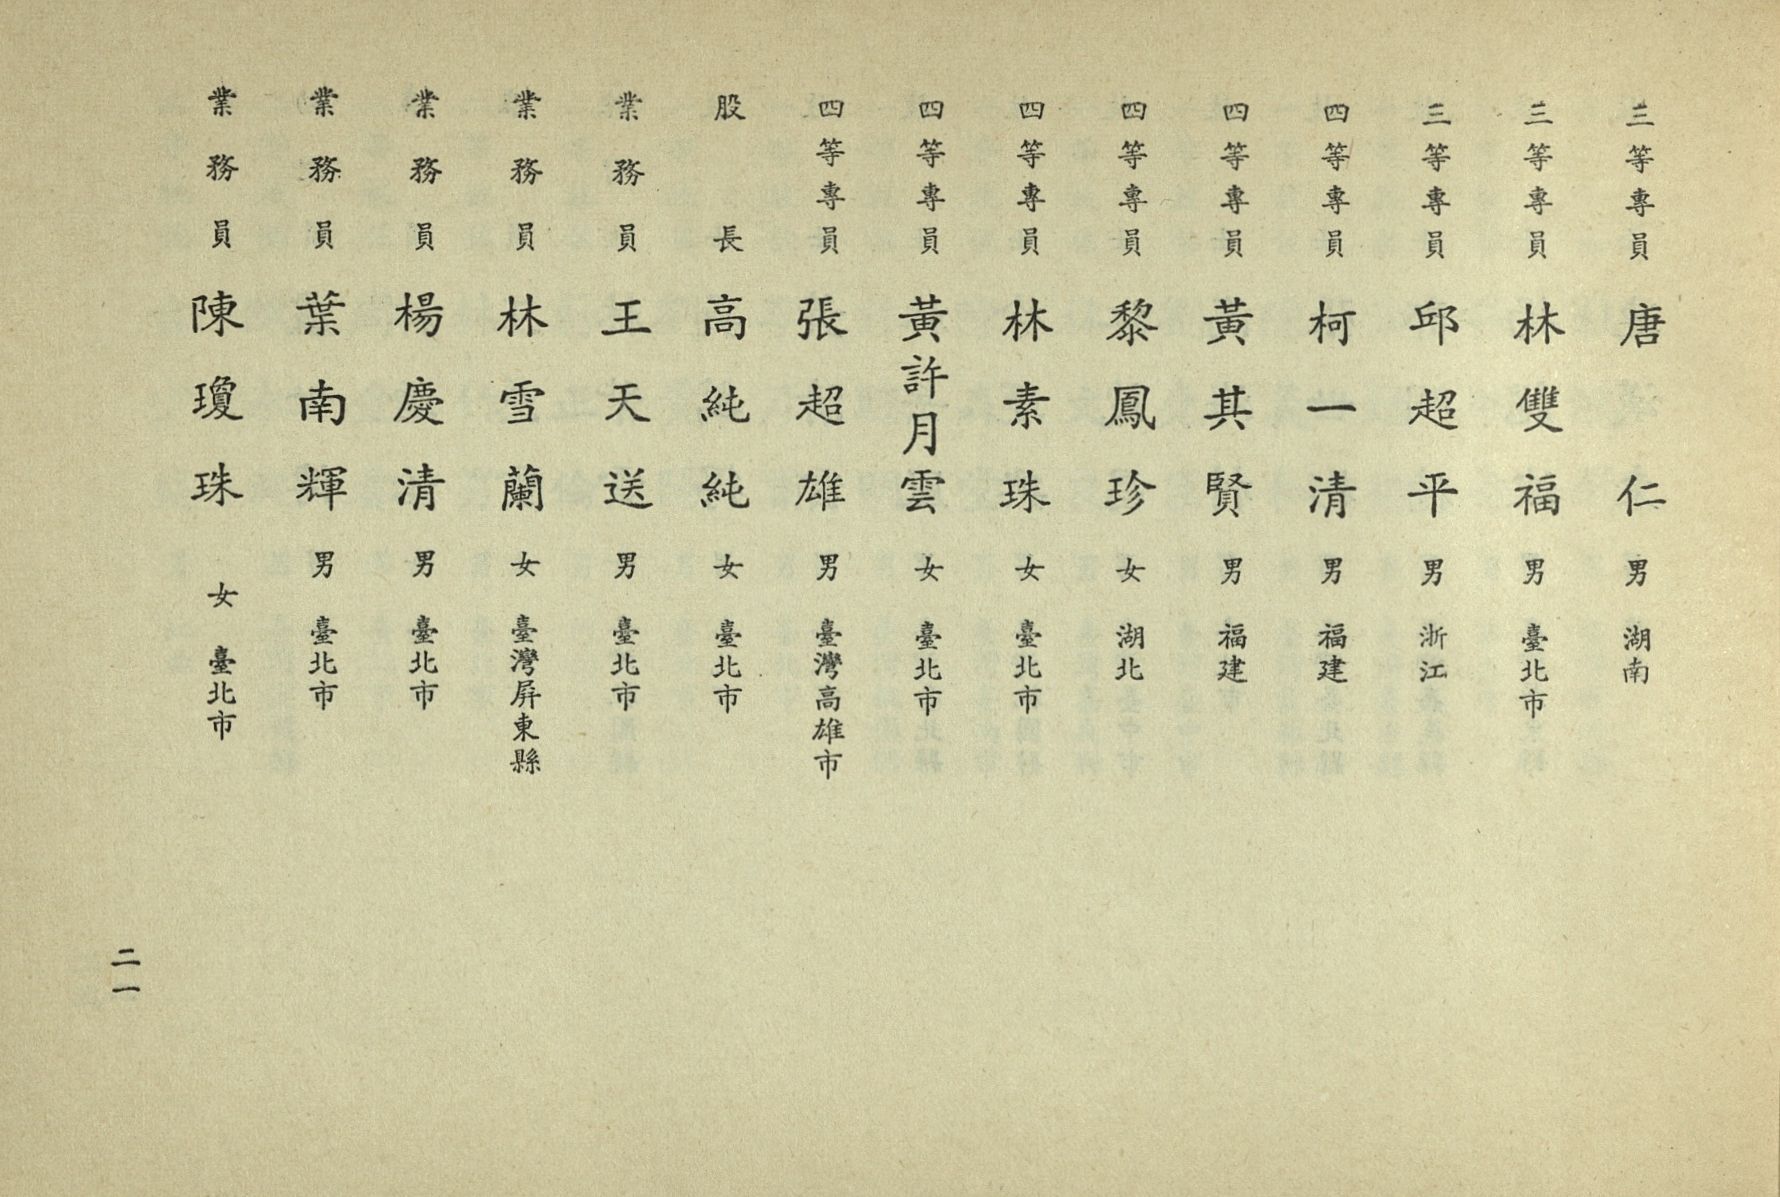 三等專員 唐仁 男 湖南
三等專員 林雙福 男 臺北市
三等專員 邱超平 男 浙江
四等專員 柯一清 男 福建
四等專員 黃其賢 男 福建
四等專員 黎鳳珍 女 湖北
四等專員 林素珠 女 臺北市
四等專員 黃許月雲 女 臺北市
四等專員 張超雄 男 臺灣高雄市
股長 高純純 女 臺北市
業務員 王天送 男 臺北市
業務員 林雪蘭 女 臺灣屏東縣
業務員 楊慶清 男 臺北市
業務員 葉南輝 男 臺北市
業務員 陳瓊珠 女 臺北市
二一